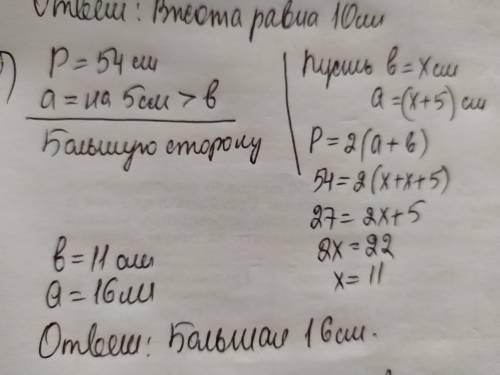 Ответ: Высота равна 10см
)
P = 54 см
a = на 5см > в
Большую сторону
в = 11 см
a = 16см
Пусть в = x см
a = (x+5) см
P = 2(a+в)
54 = 2(x+x+5)
27 = 2x+5
2x = 22
x = 11
Ответ: Большая 16см.